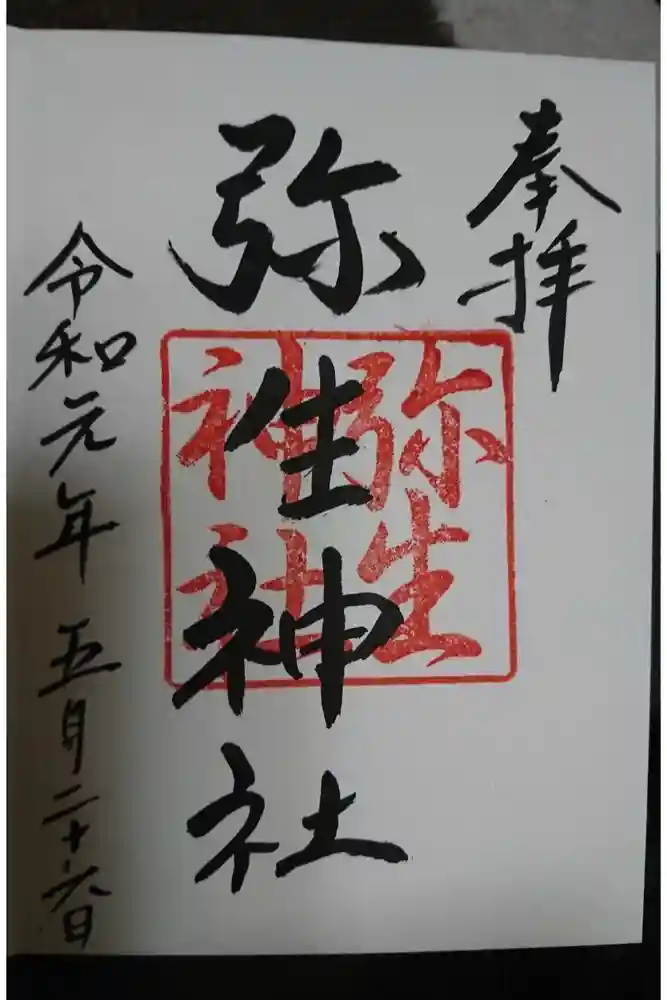 奉拝
弥生神社
弥生
神社
令和元年五月二十六日